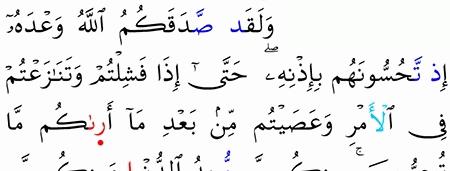 وَلَقَد صَّدَقَكُمُ ٱللَّهُ وَعۡدَهُۥٓ
إِذ تَّحُسُّونَهُم بِإِذۡنِهِۦۖ حَتَّىٰٓ إِذَا فَشِلۡتُمۡ وَتَنَٰزَعۡتُمۡ
فِي ٱلۡأَمۡرِ وَعَصَيۡتُم مِّنۢ بَعۡدِ مَآ أَرىٰكُم مَّا